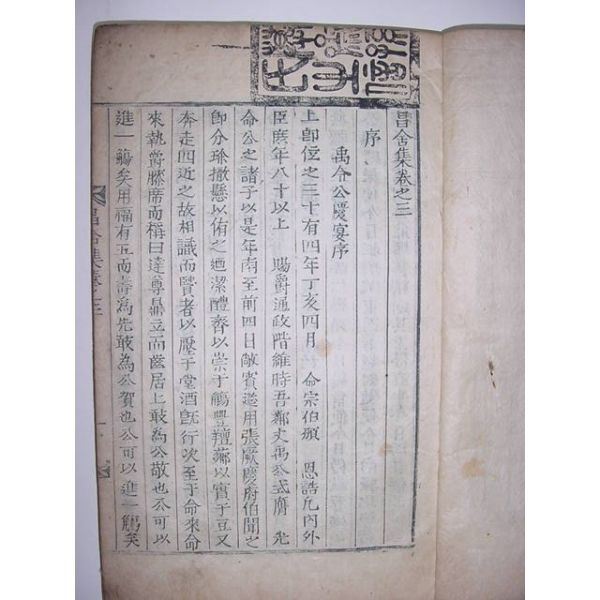 昌舍集卷之三
序
禹令公慶宴序
上卽位之三十有四年丁亥四月 命宗伯頒 恩誥凡內外
臣庶年八十以上 賜爵通政階維時吾鄰丈禹公式膺 光
命公之諸子以是年南至前四日敵賓盞用張厥慶府伯聞之
卽分瑜撤懸以侑之迺潔醴齊以崇于觴興羶薌以實于豆又
奔走四近之故相識而賢者以壓于堂酒旣行次至于命來命
來執爵膝席而稱曰達尊鼎立而齒居上敢為公敬也公可以
進一觴矣用福有五而壽為先敢為公賀也公可以進一觴矣
昌舍集卷之三